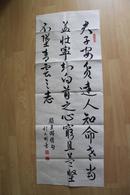 君子安贫達人知命老当
益壮寧知白首之心窮且益堅
不墜青雲之志